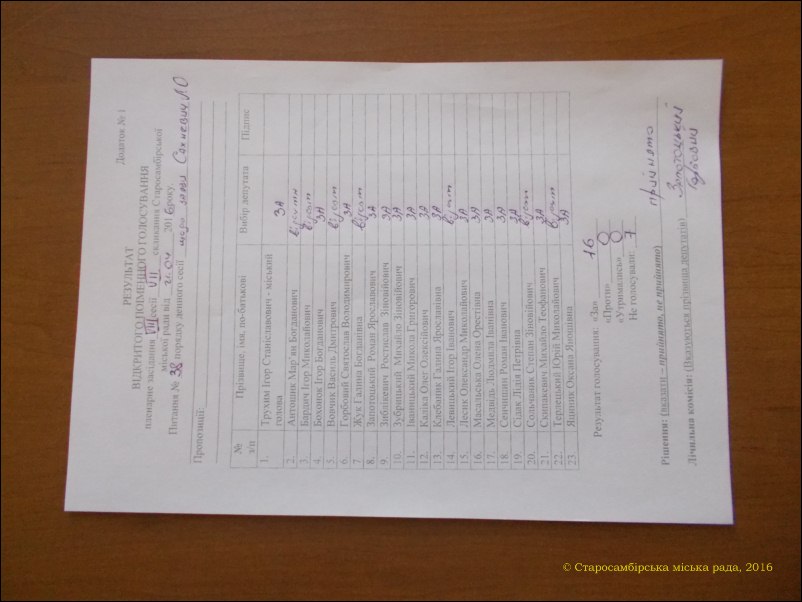 Додаток № 1
РЕЗУЛЬТАТ
ВІДКРИТОГО ПОІМЕННОГО ГОЛОСУВАННЯ
пленарне засідання VIII сесії VII скликання Старосамбірської
міської ради від 21.04 2016 року.
Питання № 38 порядку денного сесії щодо заяви
Пропозиції:
№ з/п Прізвище, імя, по-батькові Вибір депутата Підпис
1. Трухим Ігор Станіславович - міський голова ЗА
2. Антошик Мар'ян Богданович відсутн
3. Бардич Ігор Миколайович відсут
4. Бохонок Ігор Богданович ЗА
5. Вовчик Василь Дмитрович відсут
6. Горбовий Святослав Володимирович ЗА
7. Жук Галина Богданівна відсут
8. Запотоцький Роман Ярославович ЗА
9. Зиблікевич Ростислав Зіновійович ЗА
10. Зубрицький Михайло Зіновійович ЗА
11. Іваницький Микола Григорович ЗА
12. Каліка Олег Олексійович ЗА
13. Клебаник Галина Ярославівна ЗА
14. Левицький Ігор Іванович відсут
15. Лесик Олександр Миколайович ЗА
16. Масальська Олена Орестівна ЗА
17. Медвідь Людмила Іванівна ЗА
18. Сенчишин Роман Іванович ЗА
19. Сідлик Лідія Петрівна ЗА
20. Сольчаник Степан Зіновійович відсут
21. Скипакевич Михайло Теофанович ЗА
22. Терлецький Юрій Миколайович відсут
23. Яшинник Оксана Яношівна ЗА
Результат голосування: «За» 16
«Проти» 0
«Утримались» 0
Не голосували: 7
Рішення: (вказати – прийнято, не прийнято) прийнято
Лічильна комісія: (Вказуються прізвища депутатів) Запотоцький
Горбовий
© Старосамбірська міська рада, 2016